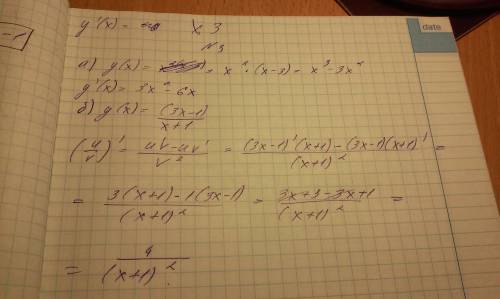 -1
date
y'(x) = х 3
N3
а) y(x) = = x² · (x-3) = x³ - 3x²
y'(x) = 3x² - 6x
б) y(x) = (3x-1)/(x+1)
(u/v)' = (u'v - uv')/v² = ((3x-1)'(x+1) - (3x-1)(x+1)')/(x+1)² =
= (3(x+1) - 1(3x-1))/(x+1)² = (3x+3-3x+1)/(x+1)² =
= 4/(x+1)².